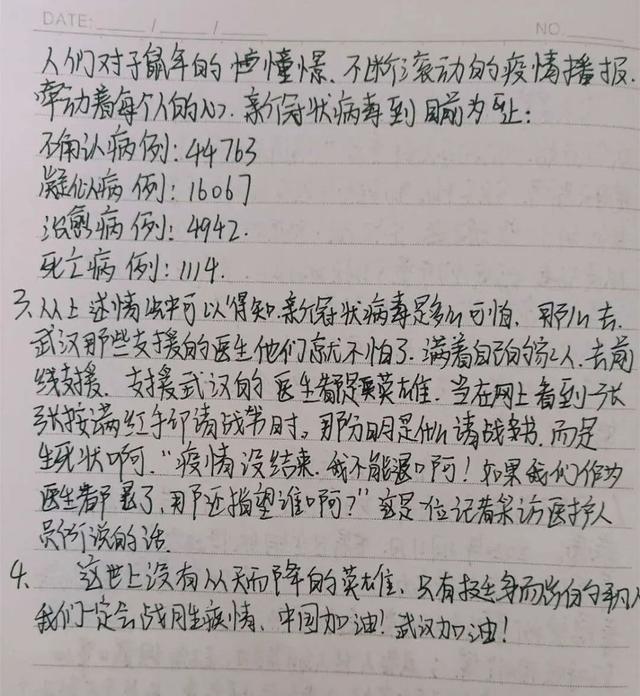 DATE: / / NO.
人们对子鼠年的憧憬.不断滚动的疫情播报.
牵动着每个人的心.新冠状病毒到目前为止:
确认病例:44763
疑似病例:16067
治愈病例:4942.
死亡病例:1114.
3、从上述情况中可以得知.新冠状病毒是多么可怕、那么去.
武汉那些支援的医生他们就不怕了.满着自己的家人.去前
线支援、支援武汉的医生都是英雄.当在网上看到一张
张按满红手印请战书时。那分明是什么请战书.而是
生死状啊."疫情没结束.我不能退啊!如果我们作为
医生都退了,那还指望谁啊?"这是一位记者采访医护人
员所说的话.
4、这世上没有从天而降的英雄、只有挺身而出的平凡人
我们一定会战胜疾情、中国加油!武汉加油!